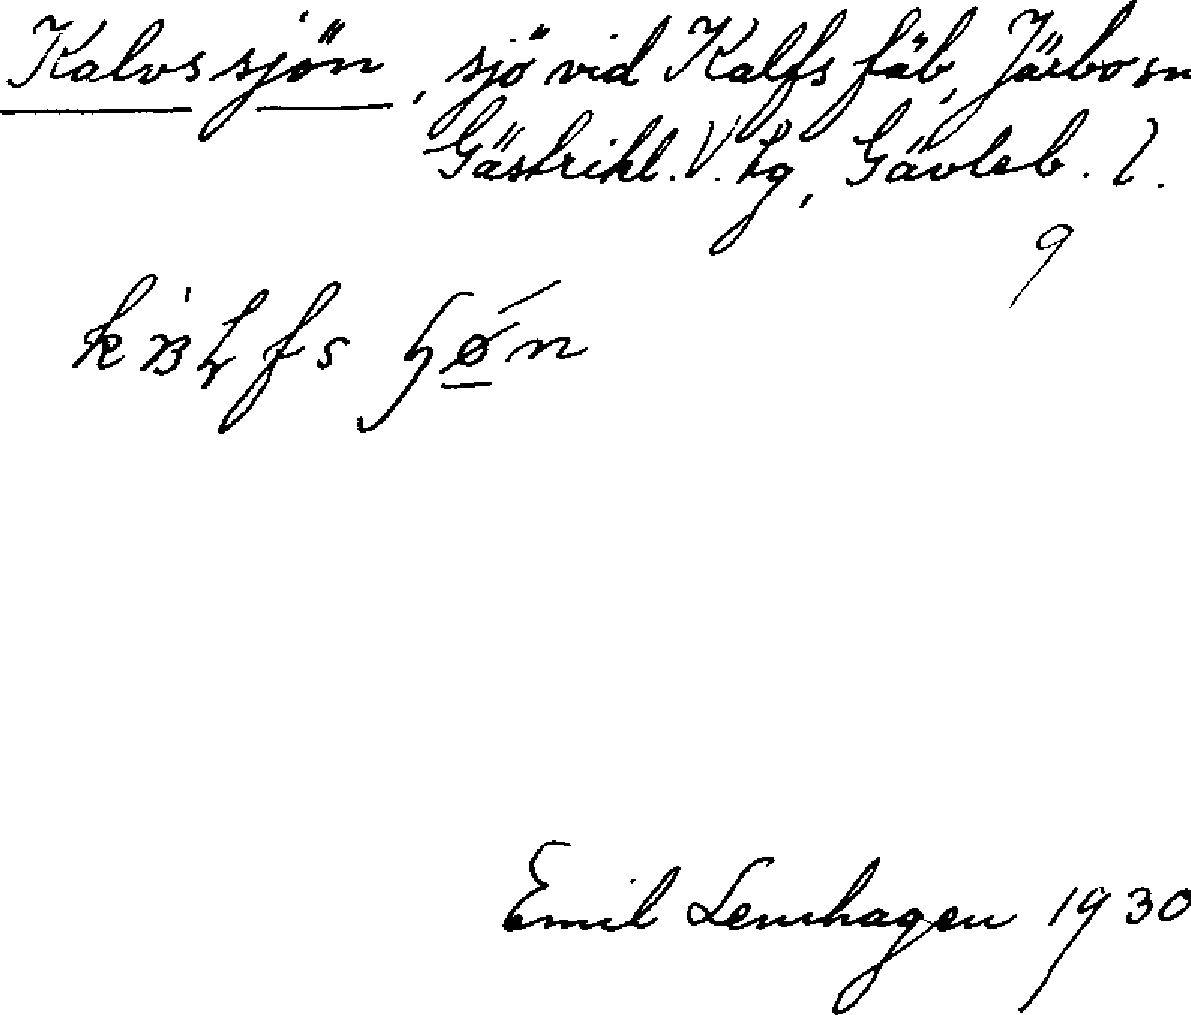 Kalvssjön, sjö vid Kalfs fäb, Järbo sn
Gästrikl. V. tg, Gävleb. l.
9
Emil Lenhagen 1930